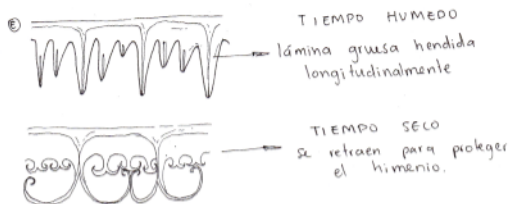 E
TIEMPO HUMEDO
lámina gruesa hendida
longitudinalmente
TIEMPO SECO
se retraen para proteger
el himenio.